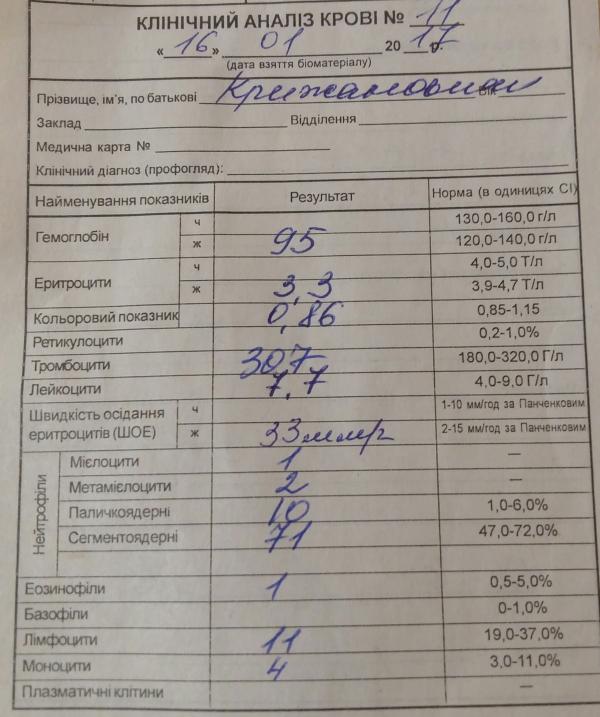 КЛІНІЧНИЙ АНАЛІЗ КРОВІ № 11
« 16 » 01 20 17 р.
(дата взяття біоматеріалу)
Прізвище, ім'я, по батькові Вік
Заклад Відділення
Медична карта №
Клінічний діагноз (профогляд):
Найменування показників Результат Норма (в одиницях СІ)
Гемоглобін ч 130,0-160,0 г/л
ж 95 120,0-140,0 г/л
Еритроцити ч 4,0-5,0 Т/л
ж 3,3 3,9-4,7 Т/л
Кольоровий показник 0,86 0,85-1,15
Ретикулоцити 0,2-1,0%
Тромбоцити 307 180,0-320,0 Г/л
Лейкоцити 7,7 4,0-9,0 Г/л
Швидкість осідання еритроцитів (ШОЕ) ч 1-10 мм/год за Панченковим
ж 33 мм/г 2-15 мм/год за Панченковим
Нейтрофіли
Мієлоцити 1 —
Метамієлоцити 2 —
Паличкоядерні 10 1,0-6,0%
Сегментоядерні 71 47,0-72,0%
Еозинофіли 1 0,5-5,0%
Базофіли 0-1,0%
Лімфоцити 11 19,0-37,0%
Моноцити 4 3,0-11,0%
Плазматичні клітини —